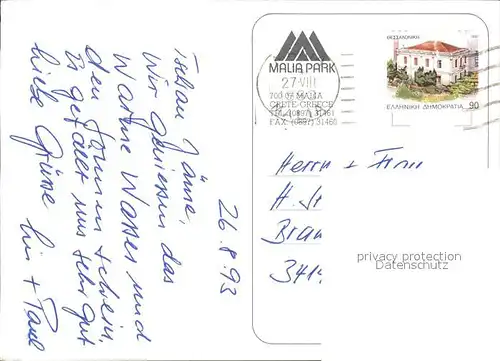 26.8.93
Wir geniessen das
Warme Wasser und
den Sonnenschein.
Es gefällt uns sehr gut
liebe Grüsse
MALIA PARK
27 VIII
700 07 MALIA
CRETE-GREECE
TEL. (0897) 31461
FAX. (0897) 31460
ΘΕΣΣΑΛΟΝΙΚΗ
ΕΛΛΗΝΙΚΗ ΔΗΜΟΚΡΑΤΙΑ 90
Herrn + Frau
H.
privacy protection
Datenschutz